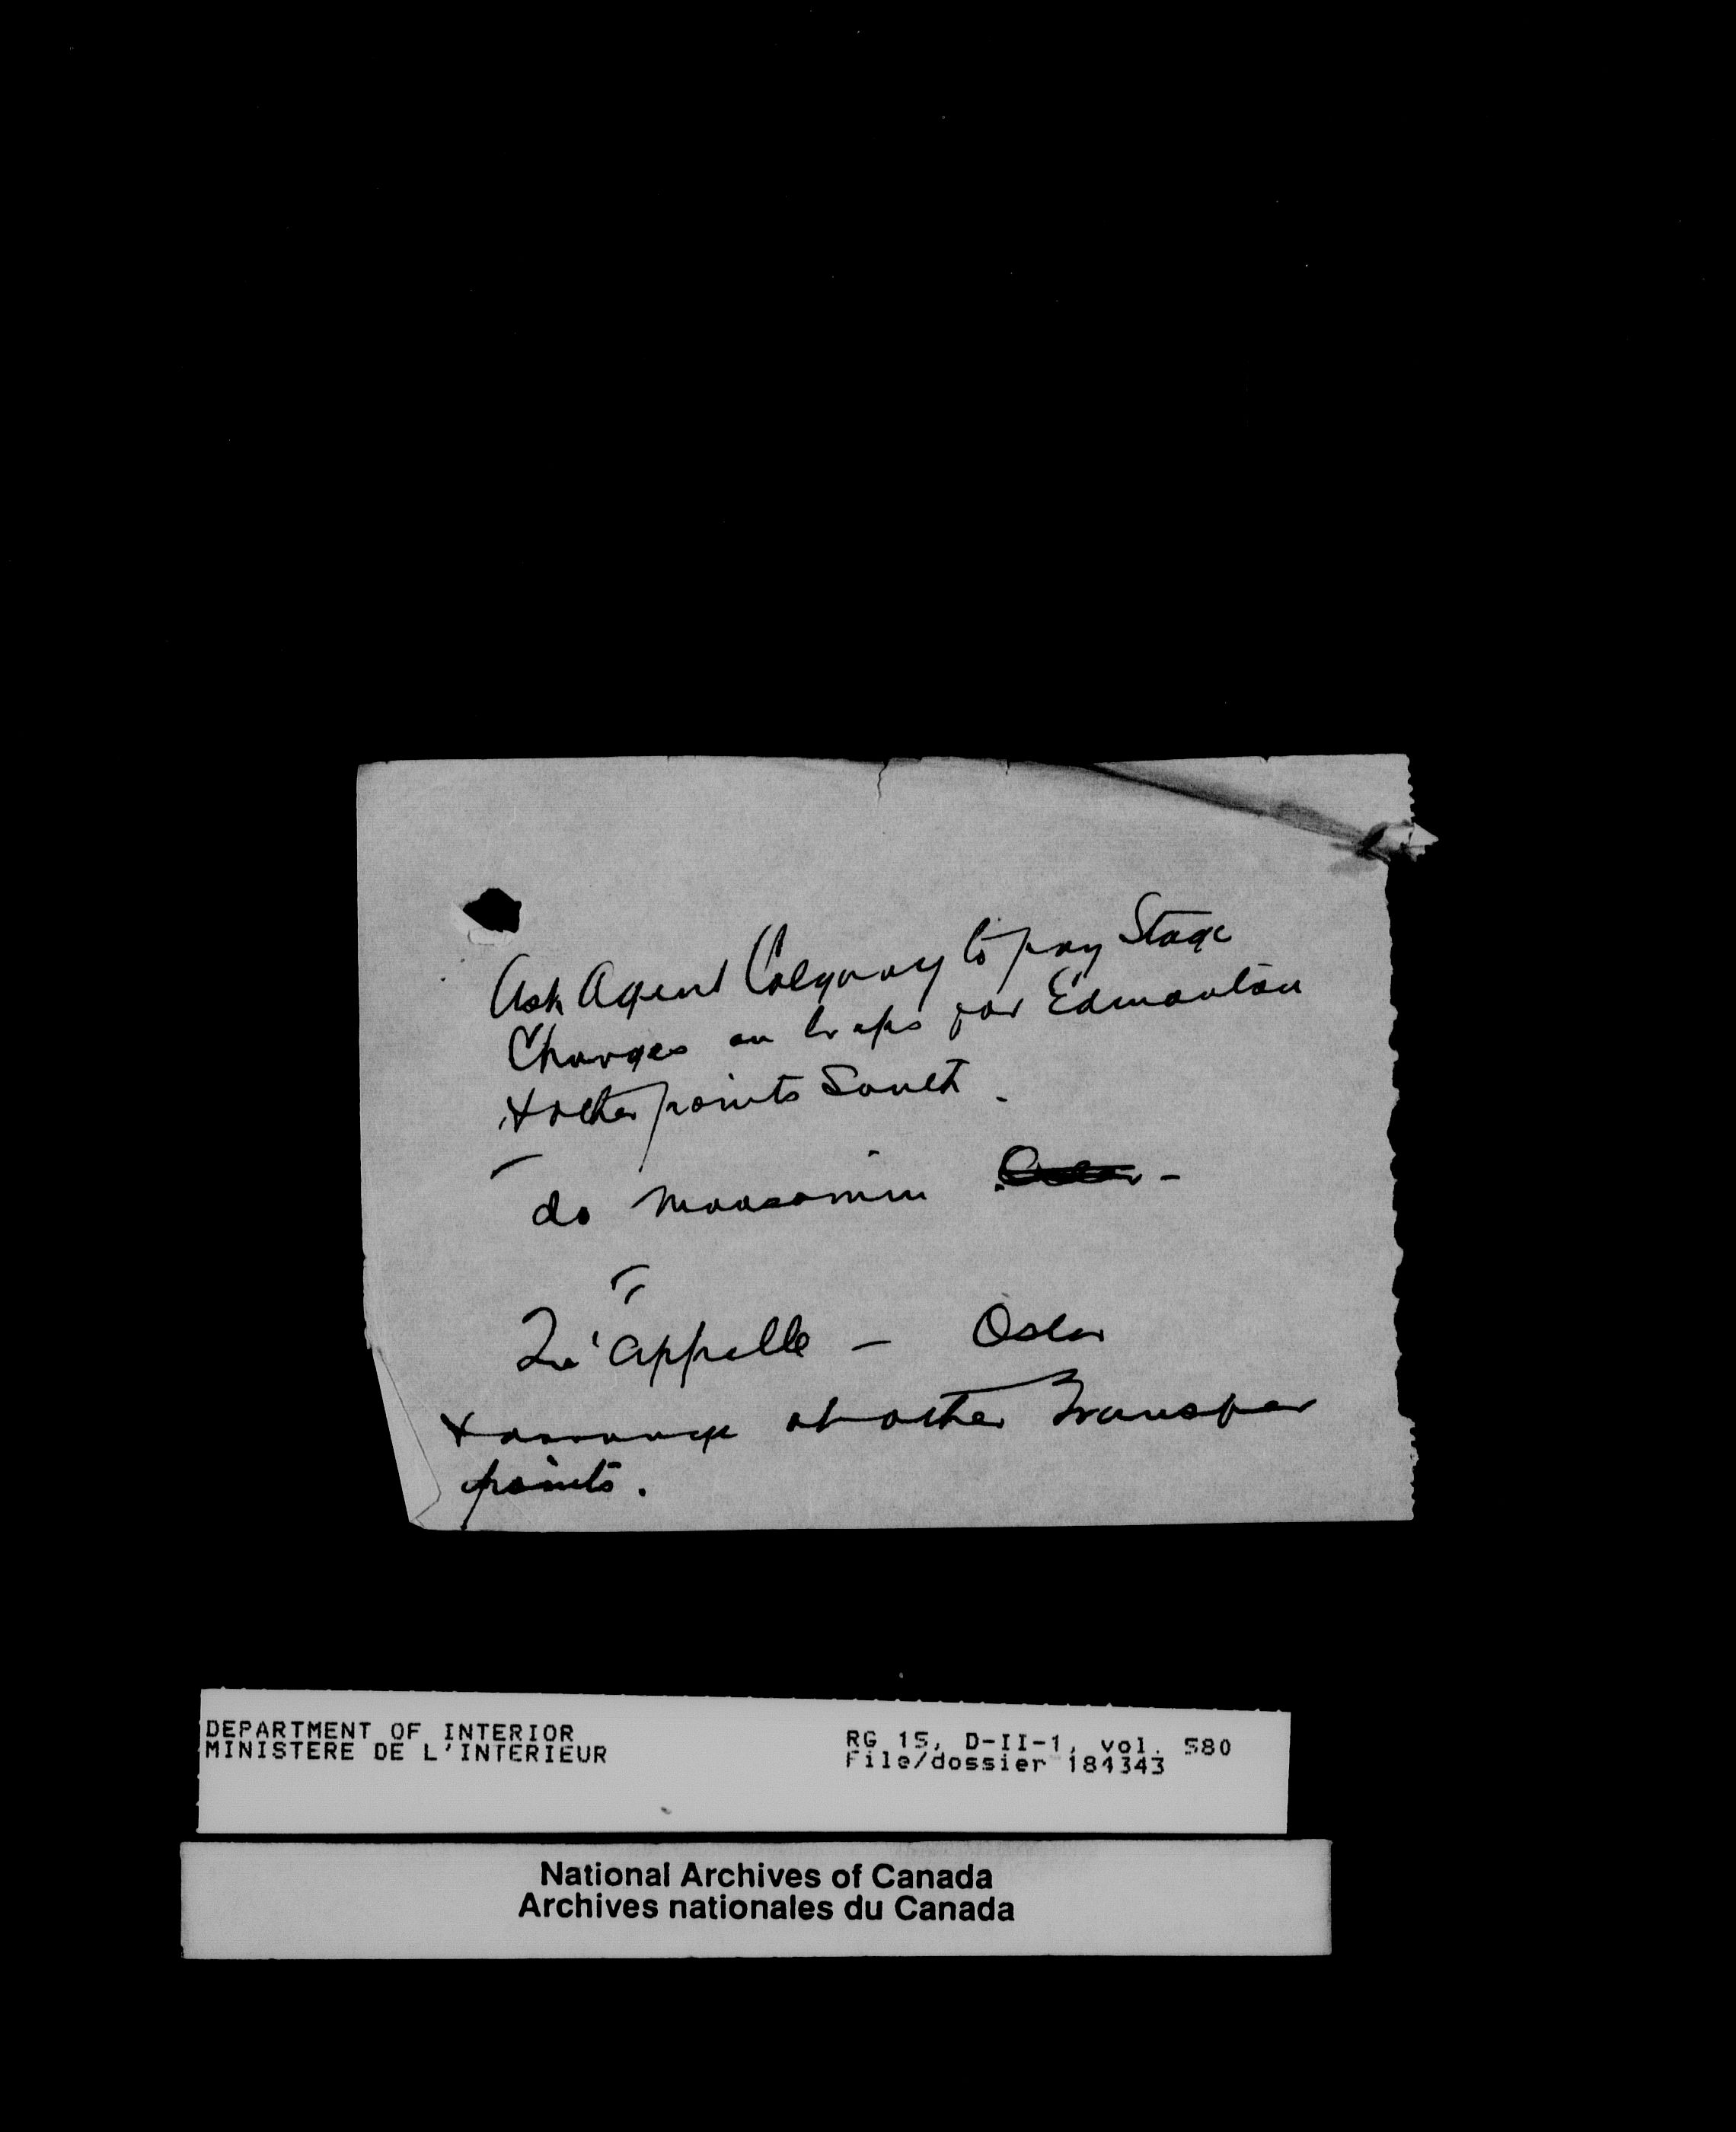 Ask Agent Calgary to pay Stage
Charges on traps for Edmonton
& other points South.
do Moosomin Osler -
" 
Qu'appelle - Osler
& arrange at other Transfer
points.
DEPARTMENT OF INTERIOR
MINISTERE DE L'INTERIEUR
RG 15, D-II-1, vol. 580
File/dossier 184343
National Archives of Canada
Archives nationales du Canada